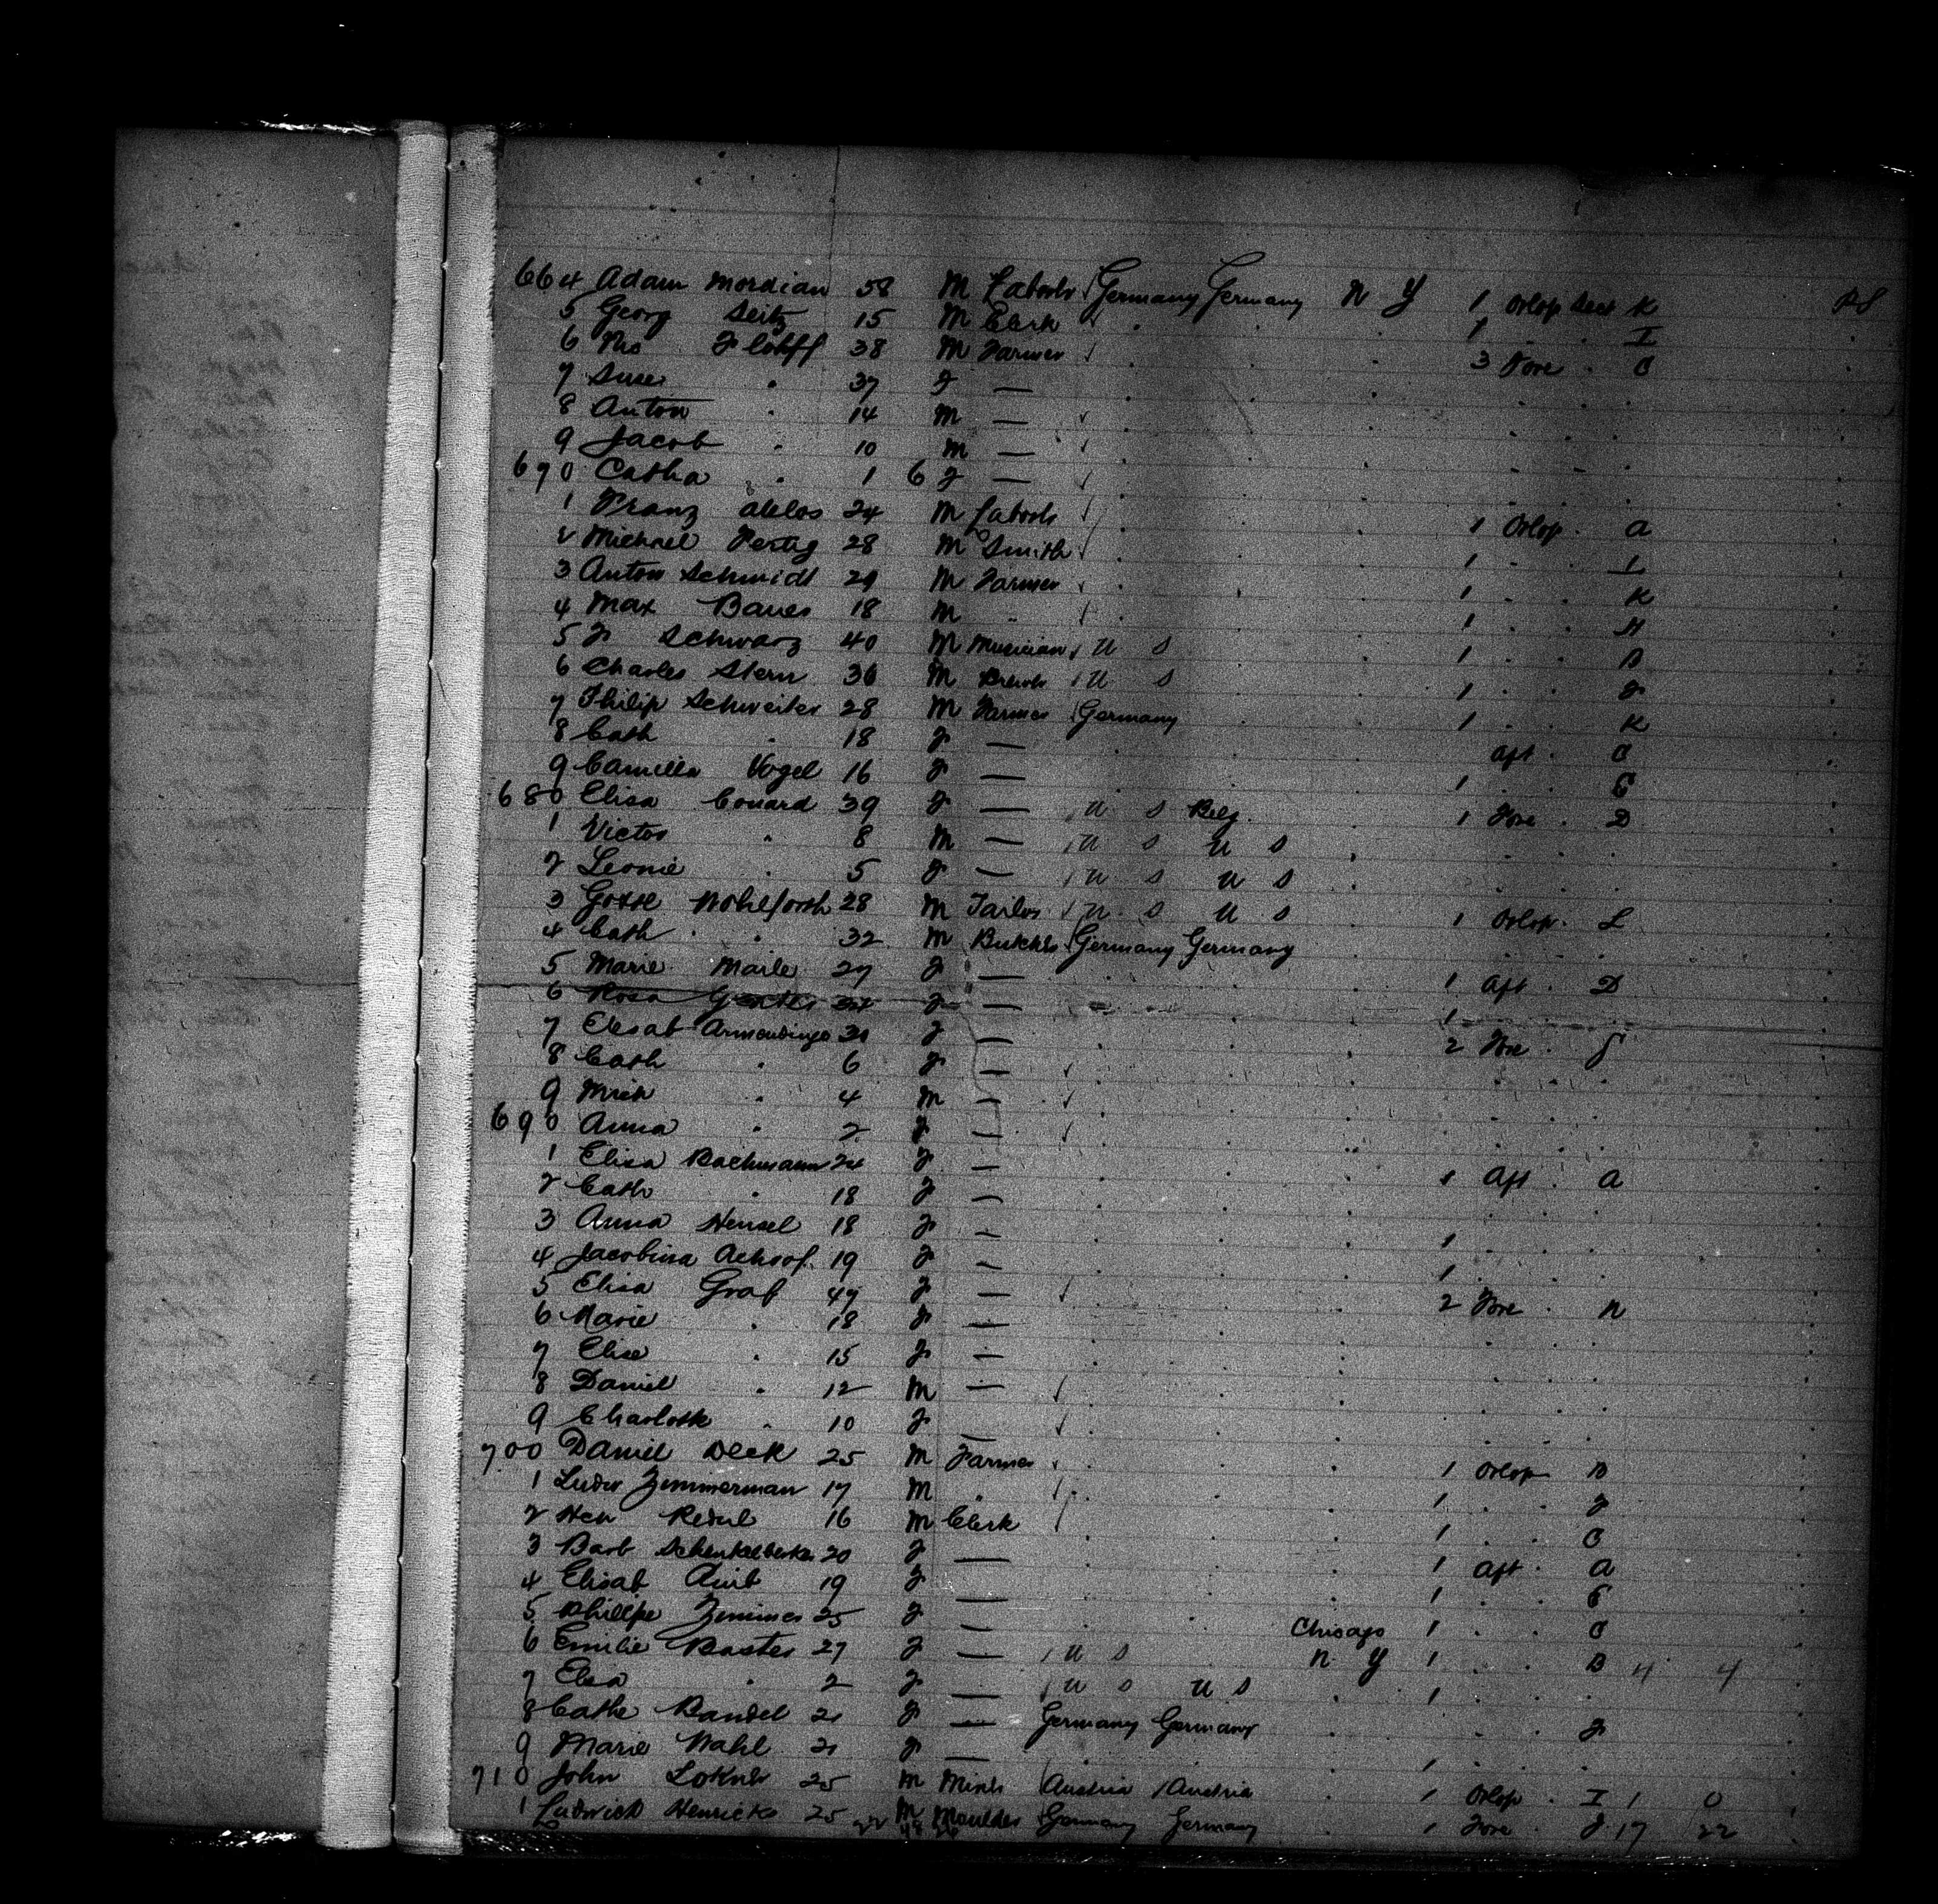 664 Adam Mordian 58 M Laborer Germany Germany N Y 1 Orlop Deck K
5 Georg Seitz 15 M Clerk 1 I
6 Ths 38 M Farmer 3 Fore C
7 Suse " 37 F —
8 Anton " 14 M —
9 Jacob " 10 M —
670 Catha " 1 6 F —
1 Franz 24 M Laborer 1 Orlop A
2 Michael Fertig 28 M Smith 1 L
3 Anton Schmidt 29 M Farmer 1 K
4 Max Bauer 18 M " 1 H
5 F Schwarz 40 M Musician U S 1 B
6 Charles Stern 36 M U S 1 F
7 Philip Schweiter 28 M Farmer Germany 1 K
8 Cath " 18 F — Aft C
9 Camilla Vogel 16 F — 1 C
680 Elisa Conard 39 F — U S Belg. 1 Fore D
1 Victor " 8 M — U S U S
2 Leonie " 5 F — U S U S
3 Wohlforth 28 M Tailor U S U S 1 Orlop L
4 Cath " 32 M Butcher Germany Germany
5 Marie Marle 27 F — 1 Aft D
6 Rosa 34 F — 1
7 Elisab 31 F — 2 Fore
8 Cath " 6 F —
9 Mich " 4 M —
690 Anna " 2 F —
1 Elisa Bachmann 24 F — 1 Aft A
2 Cath " 18 F —
3 Anna Hensel 18 F — 1
4 Jacobina 19 F — 1
5 Elisa Graf 47 F — 2 Fore N
6 Marie " 18 F —
7 Elise " 15 F —
8 Daniel " 12 M —
9 Charlotte " 10 F —
700 Daniel Deck 25 M Farmer 1 Orlop B
1 Ludw Zimmerman 17 M " 1 F
2 Hen 16 M Clerk 1 C
3 Barb Schenkelberker 20 F — 1 Aft A
4 Elisab 19 F — 1 C
5 Zimmer 25 F — Chicago 1 C
6 Emilie Baster 27 F — U S N Y 1 B 4 4
7 Elsa " 2 F — U S U S 1
8 Cathe Bandel 21 F — Germany Germany F
9 Marie Wahl 21 F — 1
710 John 25 M Miner Austria Austria 1 Orlop I 1 0
1 Ludwick Henricks 25 M Moulder Germany Germany 1 Fore J 17 22